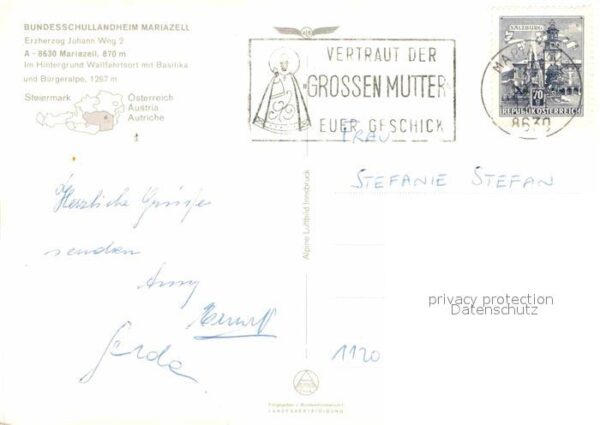 BUNDESSCHULLANDHEIM MARIAZELL
Erzherzog Johann Weg 2
A - 8630 Mariazell, 870 m
Im Hintergrund Wallfahrtsort mit Basilika
und Bürgeralpe, 1267 m
Steiermark
Österreich
Austria
Autriche
VERTRAUT DER
GROSSEN MUTTER
EUER GESCHICK
SALZBURG
70
REPUBLIK ÖSTERREICH
8630
FRAU
STEFANIE STEFAN
Herzliche Grüße
senden
Gerda
1120
Alpine Luftbild Innsbruck
privacy protection
Datenschutz
LANDESVERTEIDIGUNG